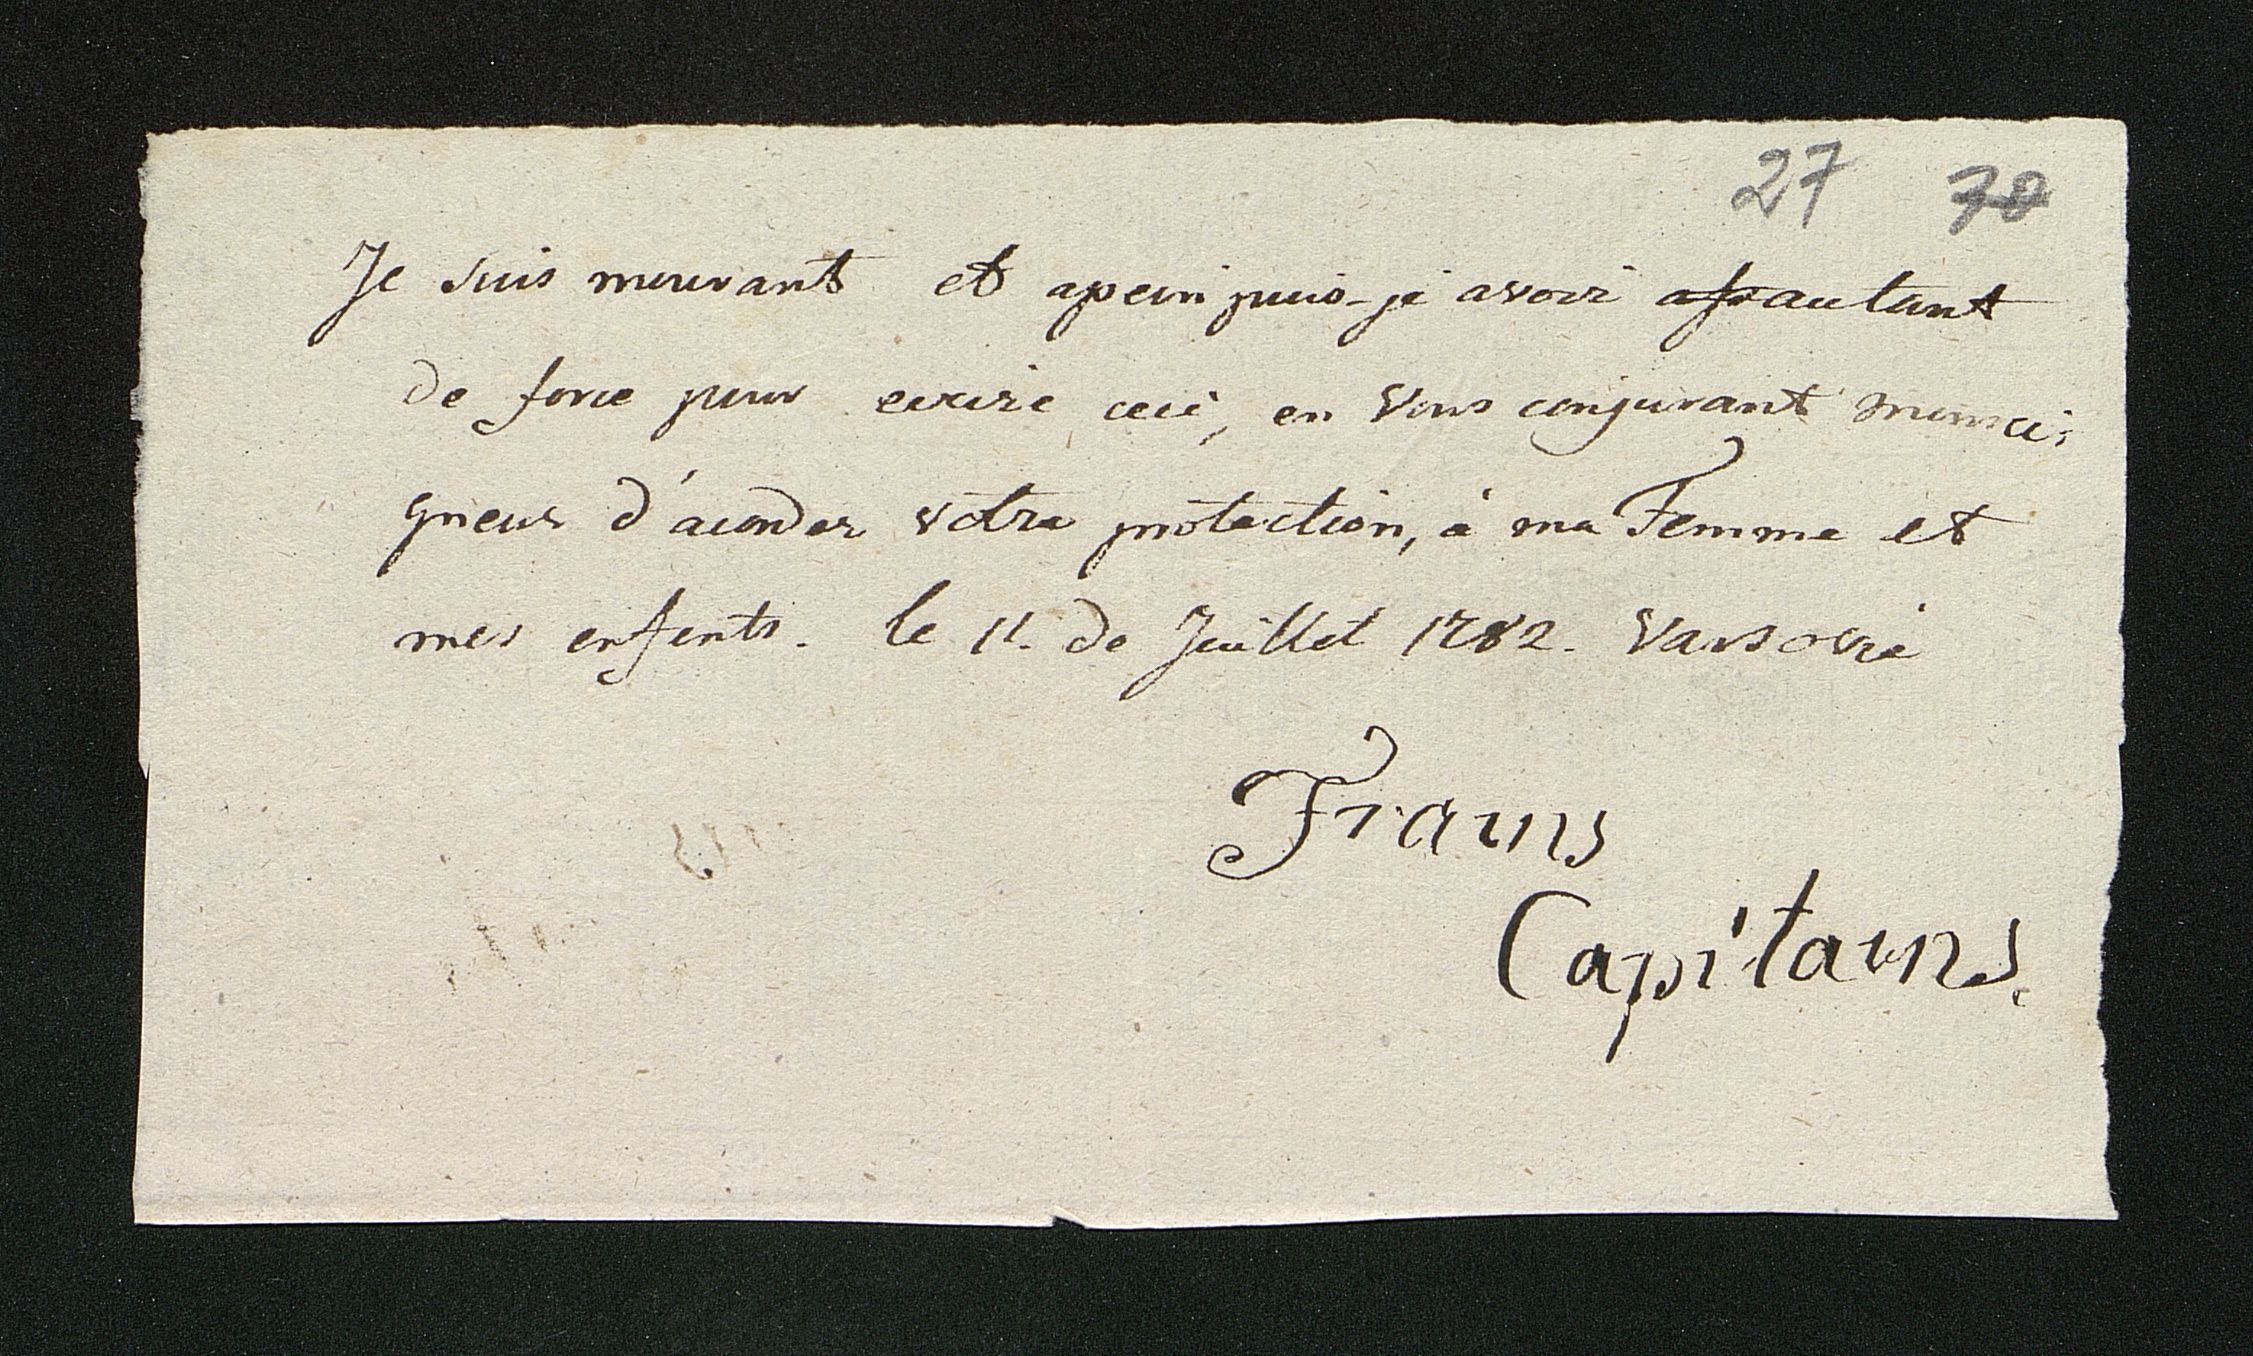 27 30
Je suis mourant et apein puis-je avoir autant
de force pour ecrire ceci, en vous conjurant monsei-
gneur d'acorder votre protection, à ma Femme et
mes enfents. le 11. de Juillet 1782. Varsovie
Frains
Capitains.